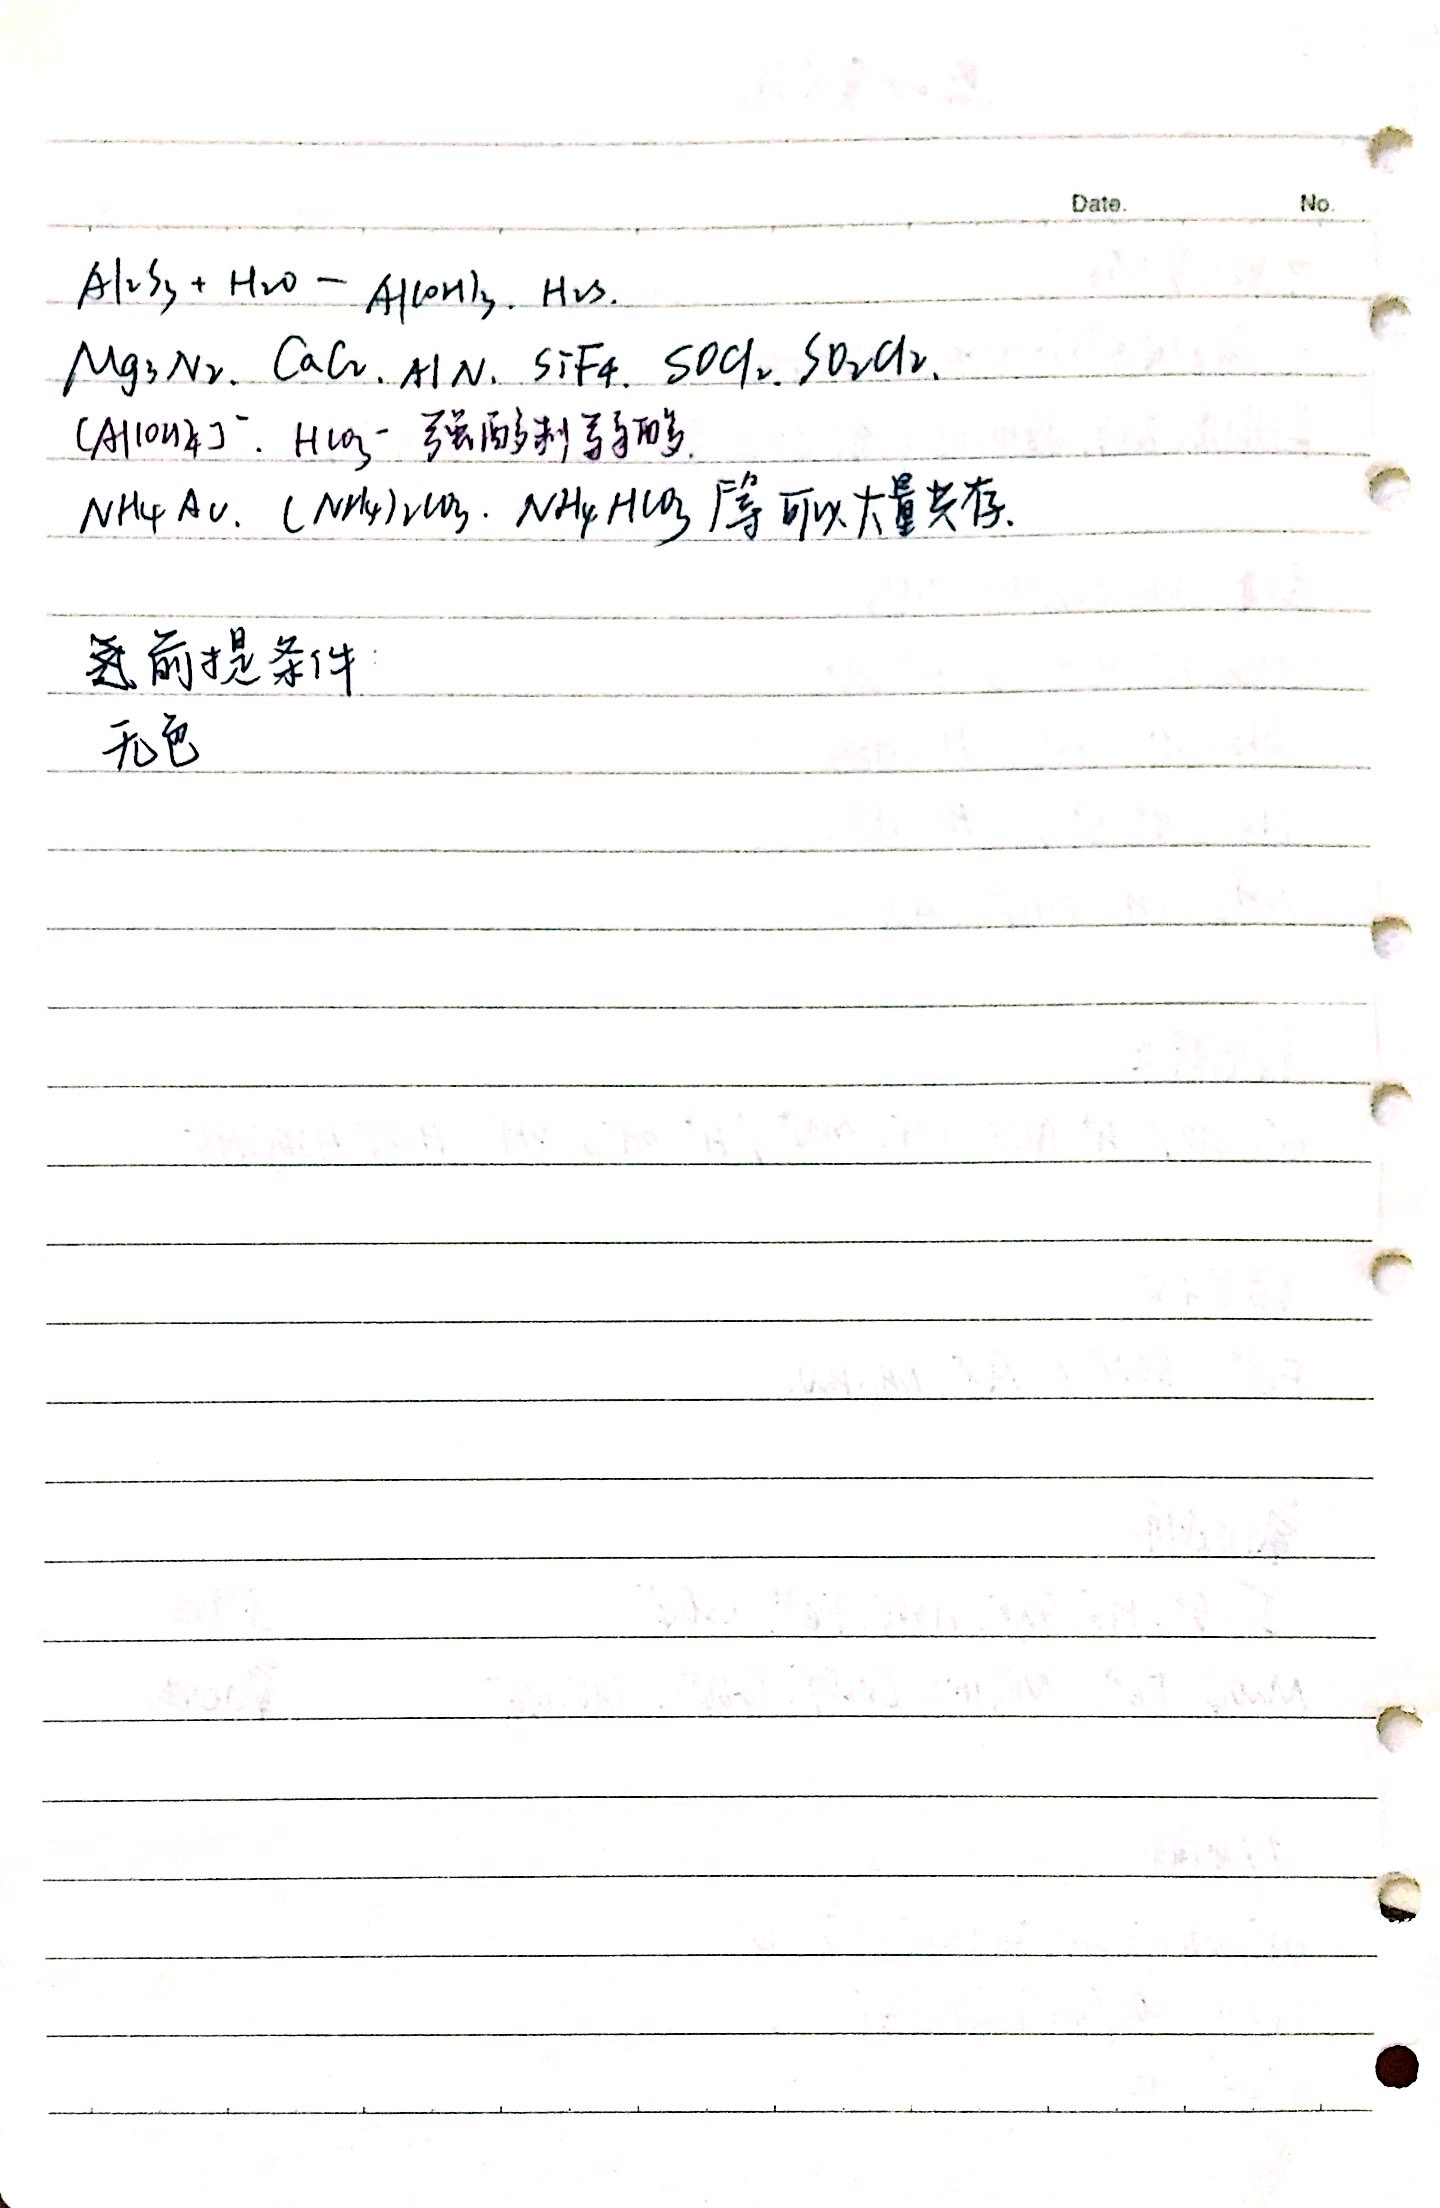 Date. No.
Al2S3 + H2O — Al(OH)3. H2S.
Mg3N2. CaC2. AlN. SiF4. SOCl2. SO2Cl2.
[Al(OH)4]⁻. HCO3⁻ 强酸制弱酸.
NH4Ac. (NH4)2CO3. NH4HCO3 等可以大量共存.
前提条件:
无色